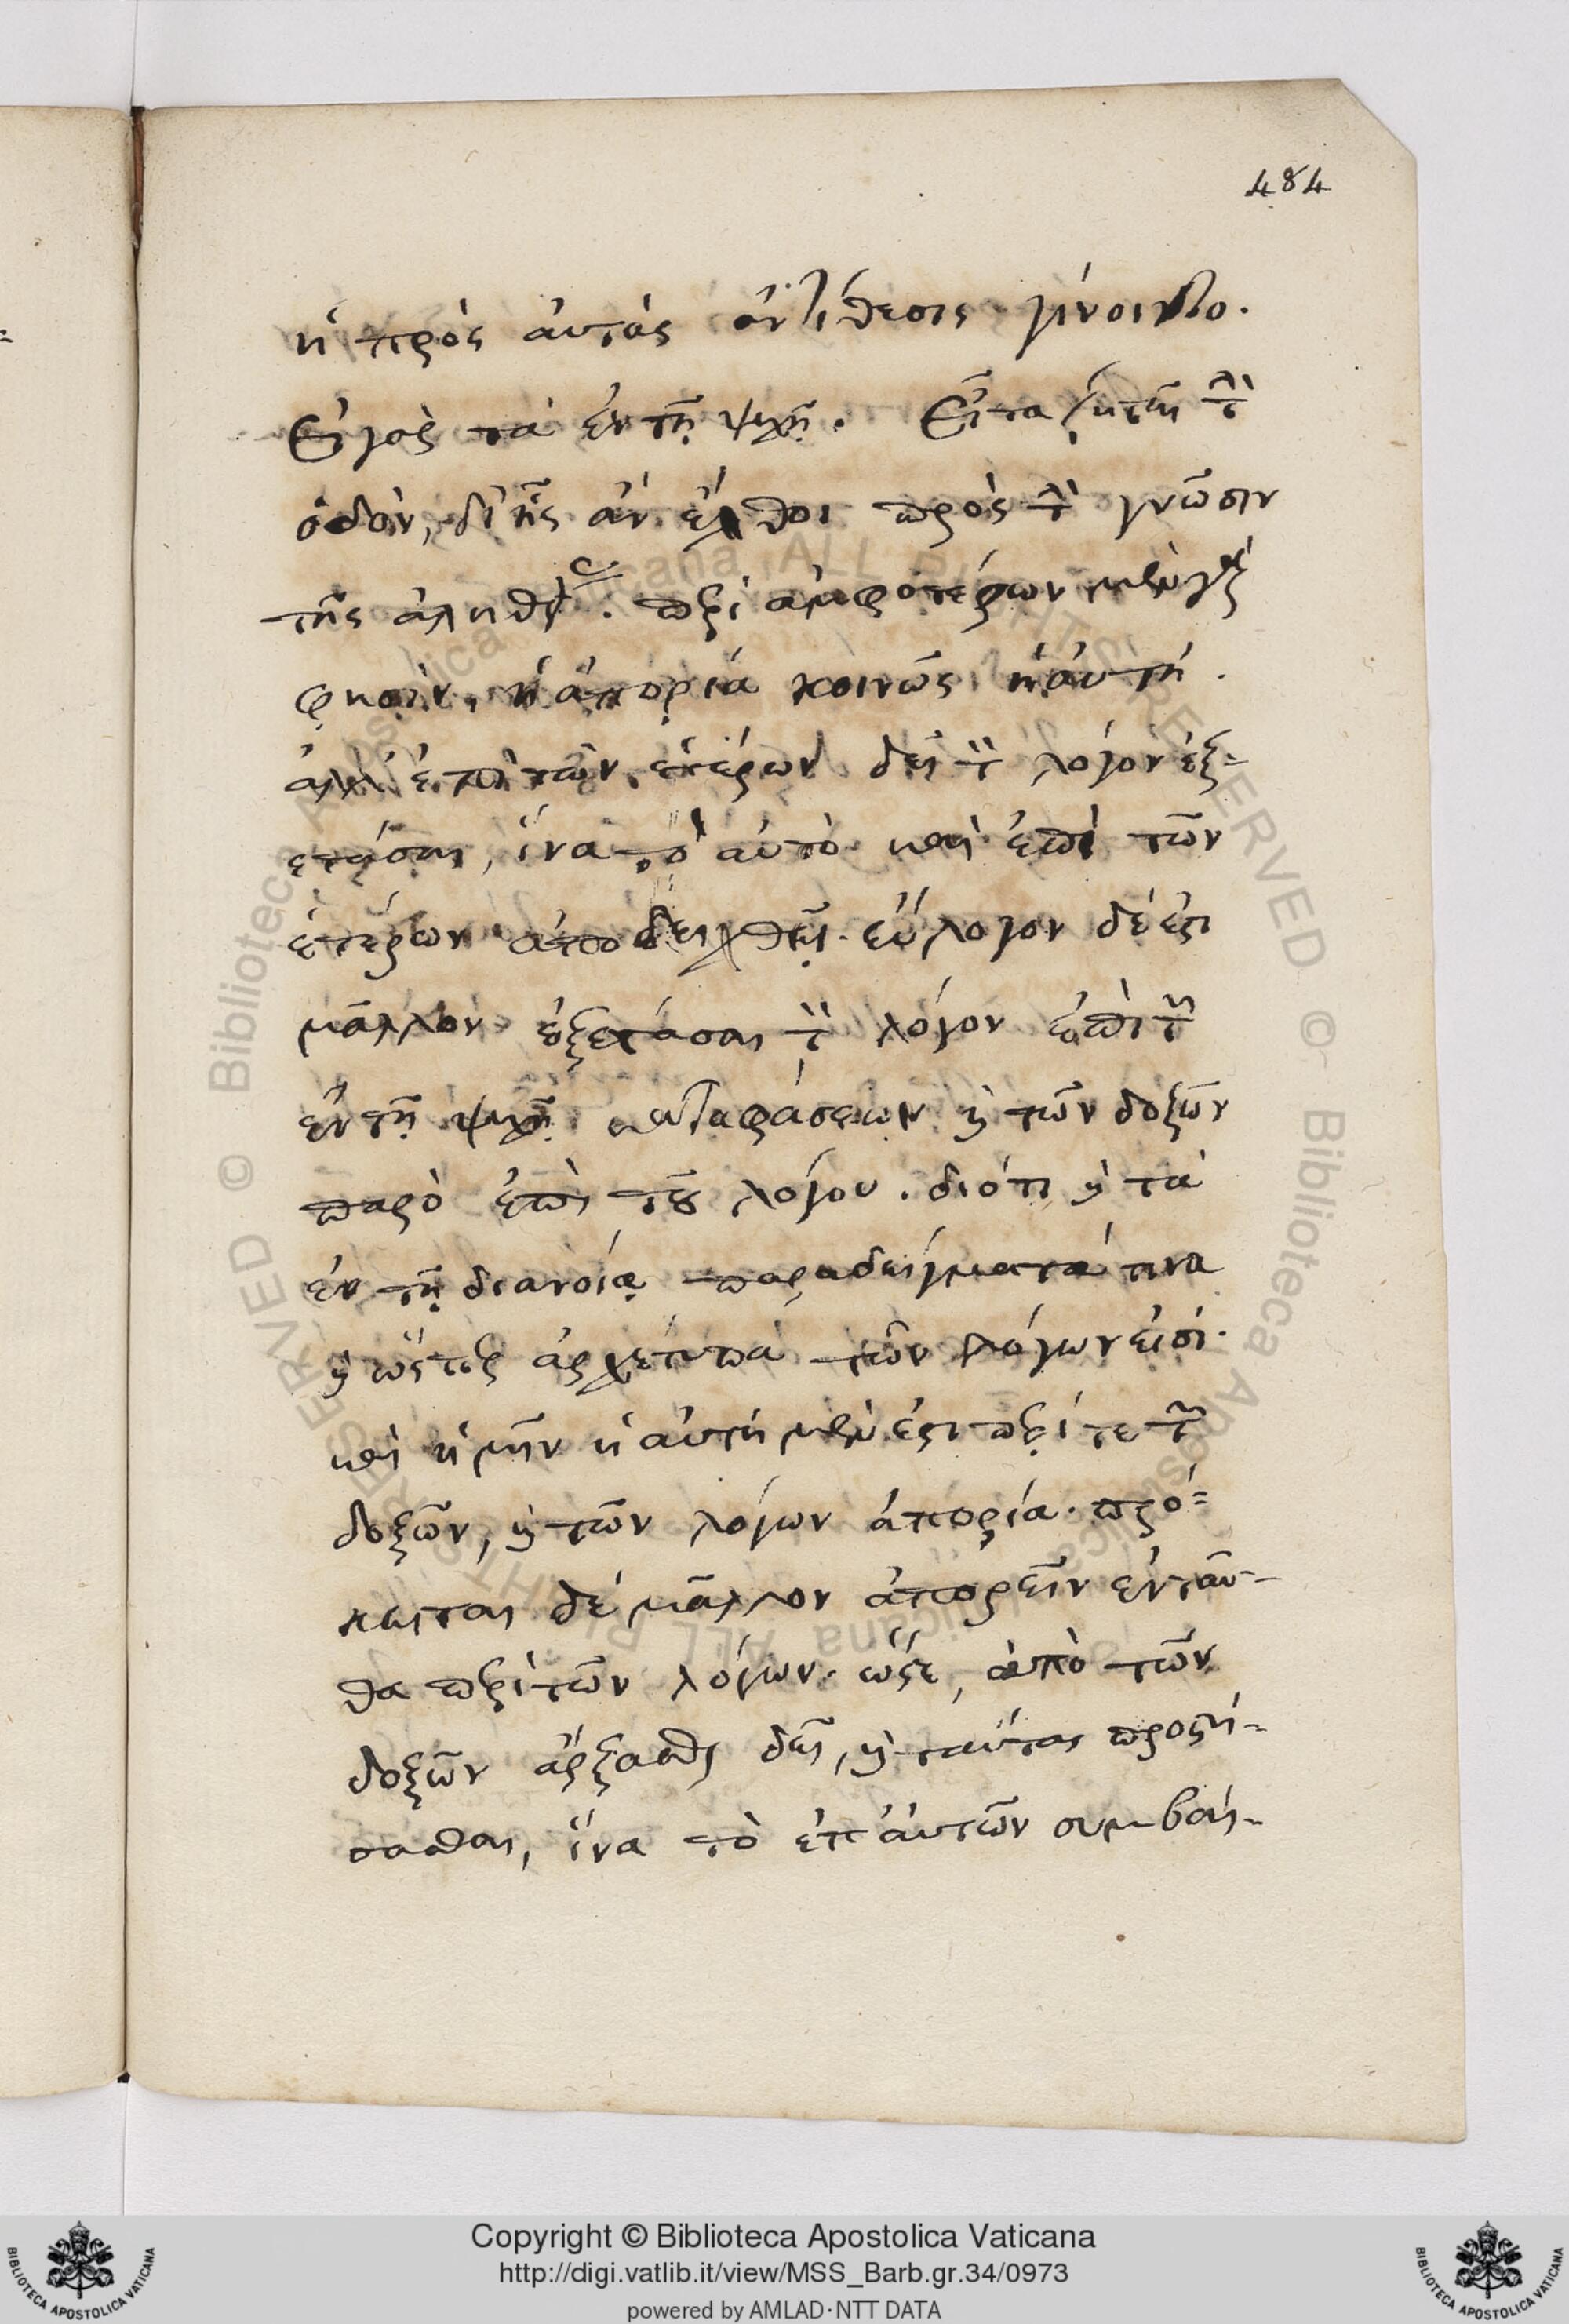 484
ἡ πρὸς αὐτὰς ἀντίθεσις γίνοιντο.
εἰ γὰρ τὰ ἐν τῇ ψυχῇ. Εἶτα ζητεῖ τὴν
ὁδὸν, δι' ἧς ἂν ἔλθοι πρὸς τὴν γνῶσιν
τῆς ἀληθείας. περὶ ἀμφοτέρων μὲν γάρ
φησιν, ἡ ἀπορία κοινῶς ἡ αὐτή.
ἀλλ' ἐπὶ τῶν ἑτέρων δεῖ τὸν λόγον ἐξ-
ετάσαι, ἵνα τὸ αὐτὸ καὶ ἐπὶ τῶν
ἑτέρων ἀποδειχθῇ. εὔλογον δέ ἐστι
μᾶλλον ἐξετάσαι τὸν λόγον ἐπὶ τῶν
ἐν τῇ ψυχῇ καταφάσεων καὶ τῶν δοξῶν
παρὸ ἐπὶ τοῦ λόγου. διότι καὶ τὰ
ἐν τῇ διανοίᾳ παραδείγματά τινα
καὶ ὥσπερ ἀρχέτυπα τῶν λόγων εἰσί.
καὶ ἡ μὴν ἡ αὐτὴ μέν ἐστι περί τε τῶν
δοξῶν, καὶ τῶν λόγων ἀπορία. πρό-
κειται δὲ μᾶλλον ἀπορεῖν ἐνταῦ-
θα περὶ τῶν λόγων. ὥστε, ἀπὸ τῶν
δοξῶν ἄρξασθαι δεῖ, καὶ ταύτας προστή-
σασθαι, ἵνα τὸ ἐπ' αὐτῶν συμβαῖ-
Copyright © Biblioteca Apostolica Vaticana
http://digi.vatlib.it/view/MSS_Barb.gr.34/0973
powered by AMLAD·NTT DATA